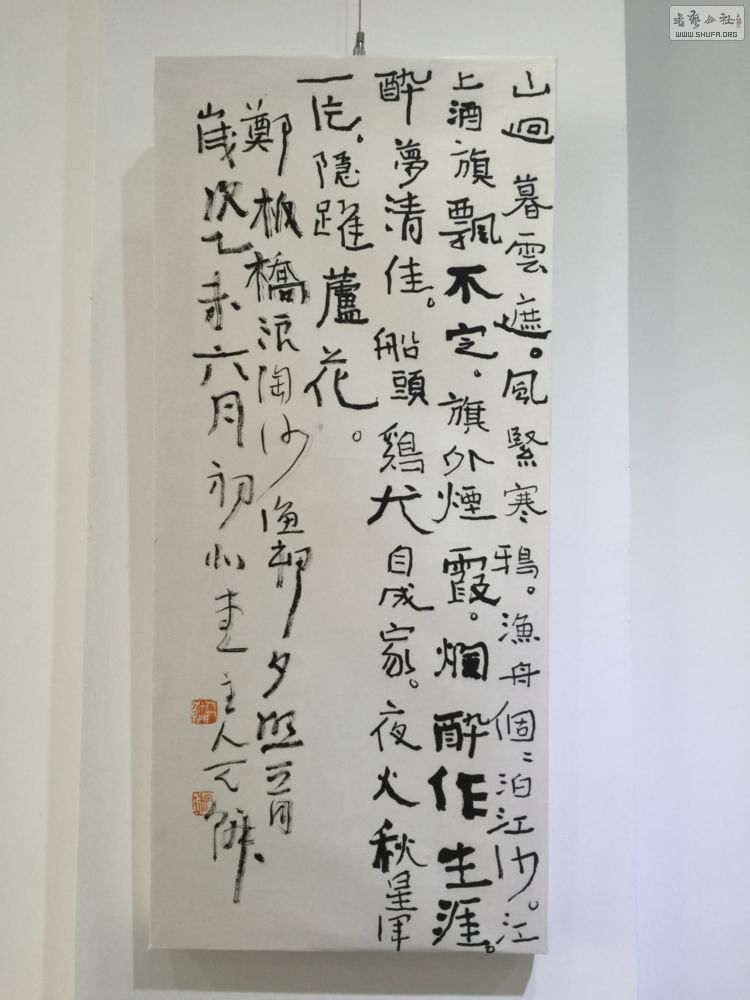 山迥暮雲遮。風緊寒鴉。漁舟個〻泊江沙。江
上酒旗飄不定。旗外煙霞。爛醉作生涯。
醉夢清佳。船頭鷄犬自成家。夜火秋星渾
一片。隱躍蘆花。
鄭板橋浪淘沙漁邨夕照
歲次乙未六月初主人
書藝公社
WWW.SHUFA.ORG